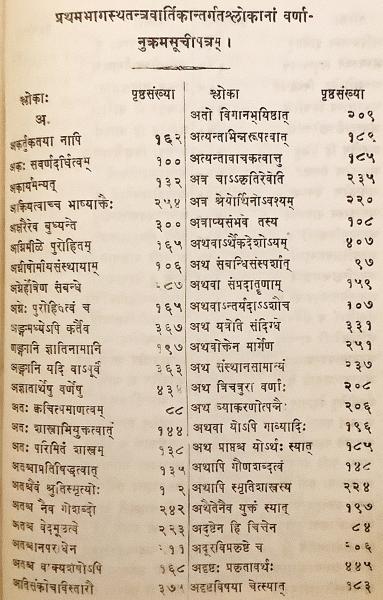 प्रथमभागस्थतन्त्रवार्तिकान्तर्गतश्लोकानां वर्णा-
नुक्रमसूचीपत्रम् ।
श्लोकाः पृष्ठसंख्या
अ.
अकर्तृकतया नापि १६२
अकः सवर्णदीर्घत्वम् १००
अकार्यमन्यत् १३२
अक्रियत्वाच्च भाष्याक्तैः २५४
अक्षरैरेव बुध्यन्ते ३००
अग्निमीळे पुरोहितम् १६५
अग्नीषोमीयसंस्थायाम् १०६
संबन्धे
अग्नेः पुरोहितत्वं च १६५
अङ्गमध्येऽपि कर्तैव ३६७
ज्ञातिनामानि १९७
अङ्गानि यदि वाऽपूर्वं
अज्ञातार्थेषु वर्णेषु
अतः क्वचित्प्रमाणत्वम् ८८
अतः शास्त्राभियुक्तत्वात् १४४
अतः परिमितं शास्त्रम् १३८
अतश्चाप्रतिषिद्धत्वात् १३५
अतश्चैवं श्रुतिस्मृत्योः
अतश्च नैव गोशब्दो २४२
अतश्च वेदमूलत्वे २२३
अतश्चानपराधेन
अतश्च वाक्यशेषोऽपि १६८
अतिसंकोचविस्तारौ
श्लोकाः पृष्ठसंख्या
अतो विगानभूयिष्ठात् २०९
अत्यन्तभिन्नरूपत्वात् १८९
अत्यन्तावाचकत्वात्तु १८५
अत्र चाऽऽकृतिरेवेति २३५
अत्र श्रेयोर्थिनोऽवश्यम् २२०
अत्राप्यसंभवे तस्य १०८
अथवाऽर्थैकदेशोऽयम् ४०७
अथ संबन्धिसंस्पर्शात् ९७
अथवा संपदातॄणाम् १५९
अथवाऽन्तर्यदाऽऽशौच १०७
अथ यत्रेति संदिग्धे ३३१
अथवोक्तेन मार्गेण २५१
अथ संस्थानसामान्यं २३७
अथ त्रिचतुरा वर्णाः २०८
अथ व्याकरणोत्पन्नैः २०६
अथवा योऽपि गाव्यादिः १९६
अथ प्राप्तश्च योऽर्थः स्यात् १८५
अथापि गौणशब्दत्वं १४८
अथापि स्मृतिशास्त्रस्य २२४
अथैतेनैव युक्तं स्यात् १९७
अदृष्टेन हि चित्तेन ८४
अदूरविप्रकृष्टे च २०६
अदृष्टः प्रकृतावर्थः ४४५
अदृष्टविषया चेत्स्यात् १८३